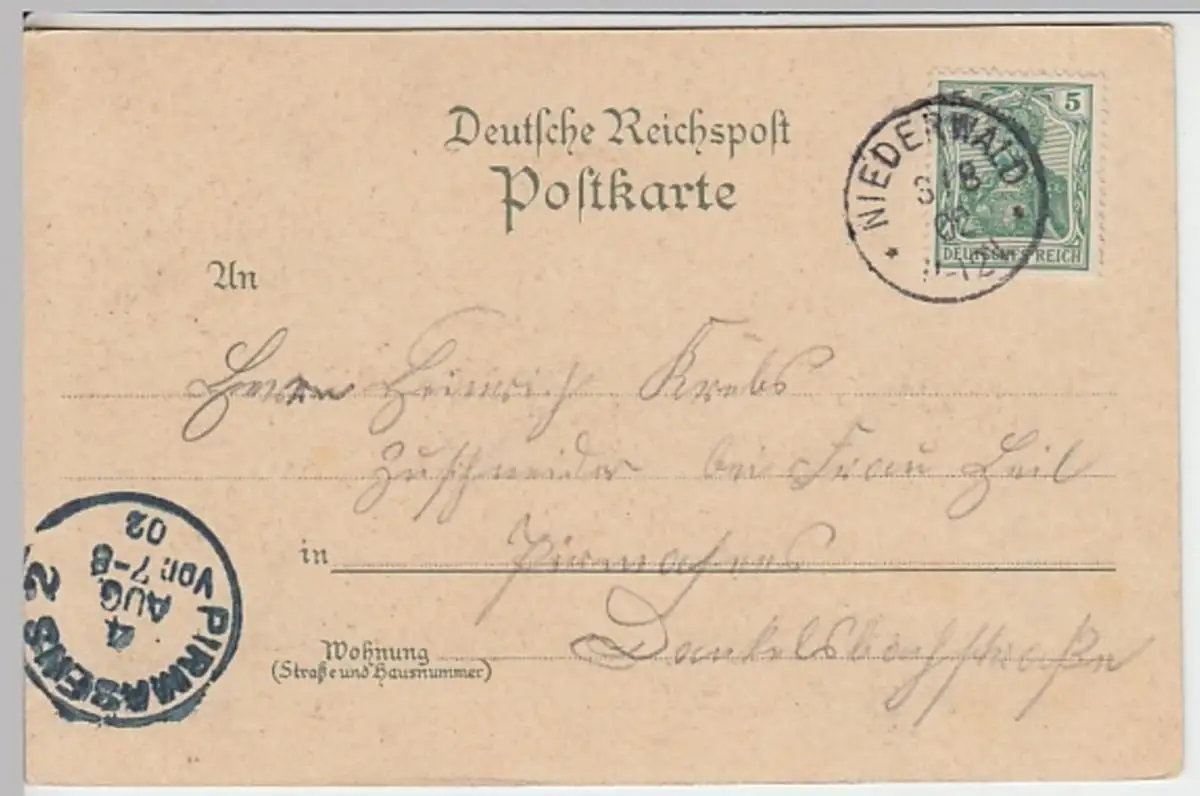 Deutsche Reichspost
Postkarte
5
DEUTSCHES REICH
* NIEDERWALD *
3/8
02
11-12
An
Herrn Heinrich Krebs
Zuschneider bei Frau Heil
in Pirmasens
Wohnung
(Straße und Hausnummer)
Dankelsbachstraße
PIRMASENS 2
4
AUG
Vor. 7-8
02